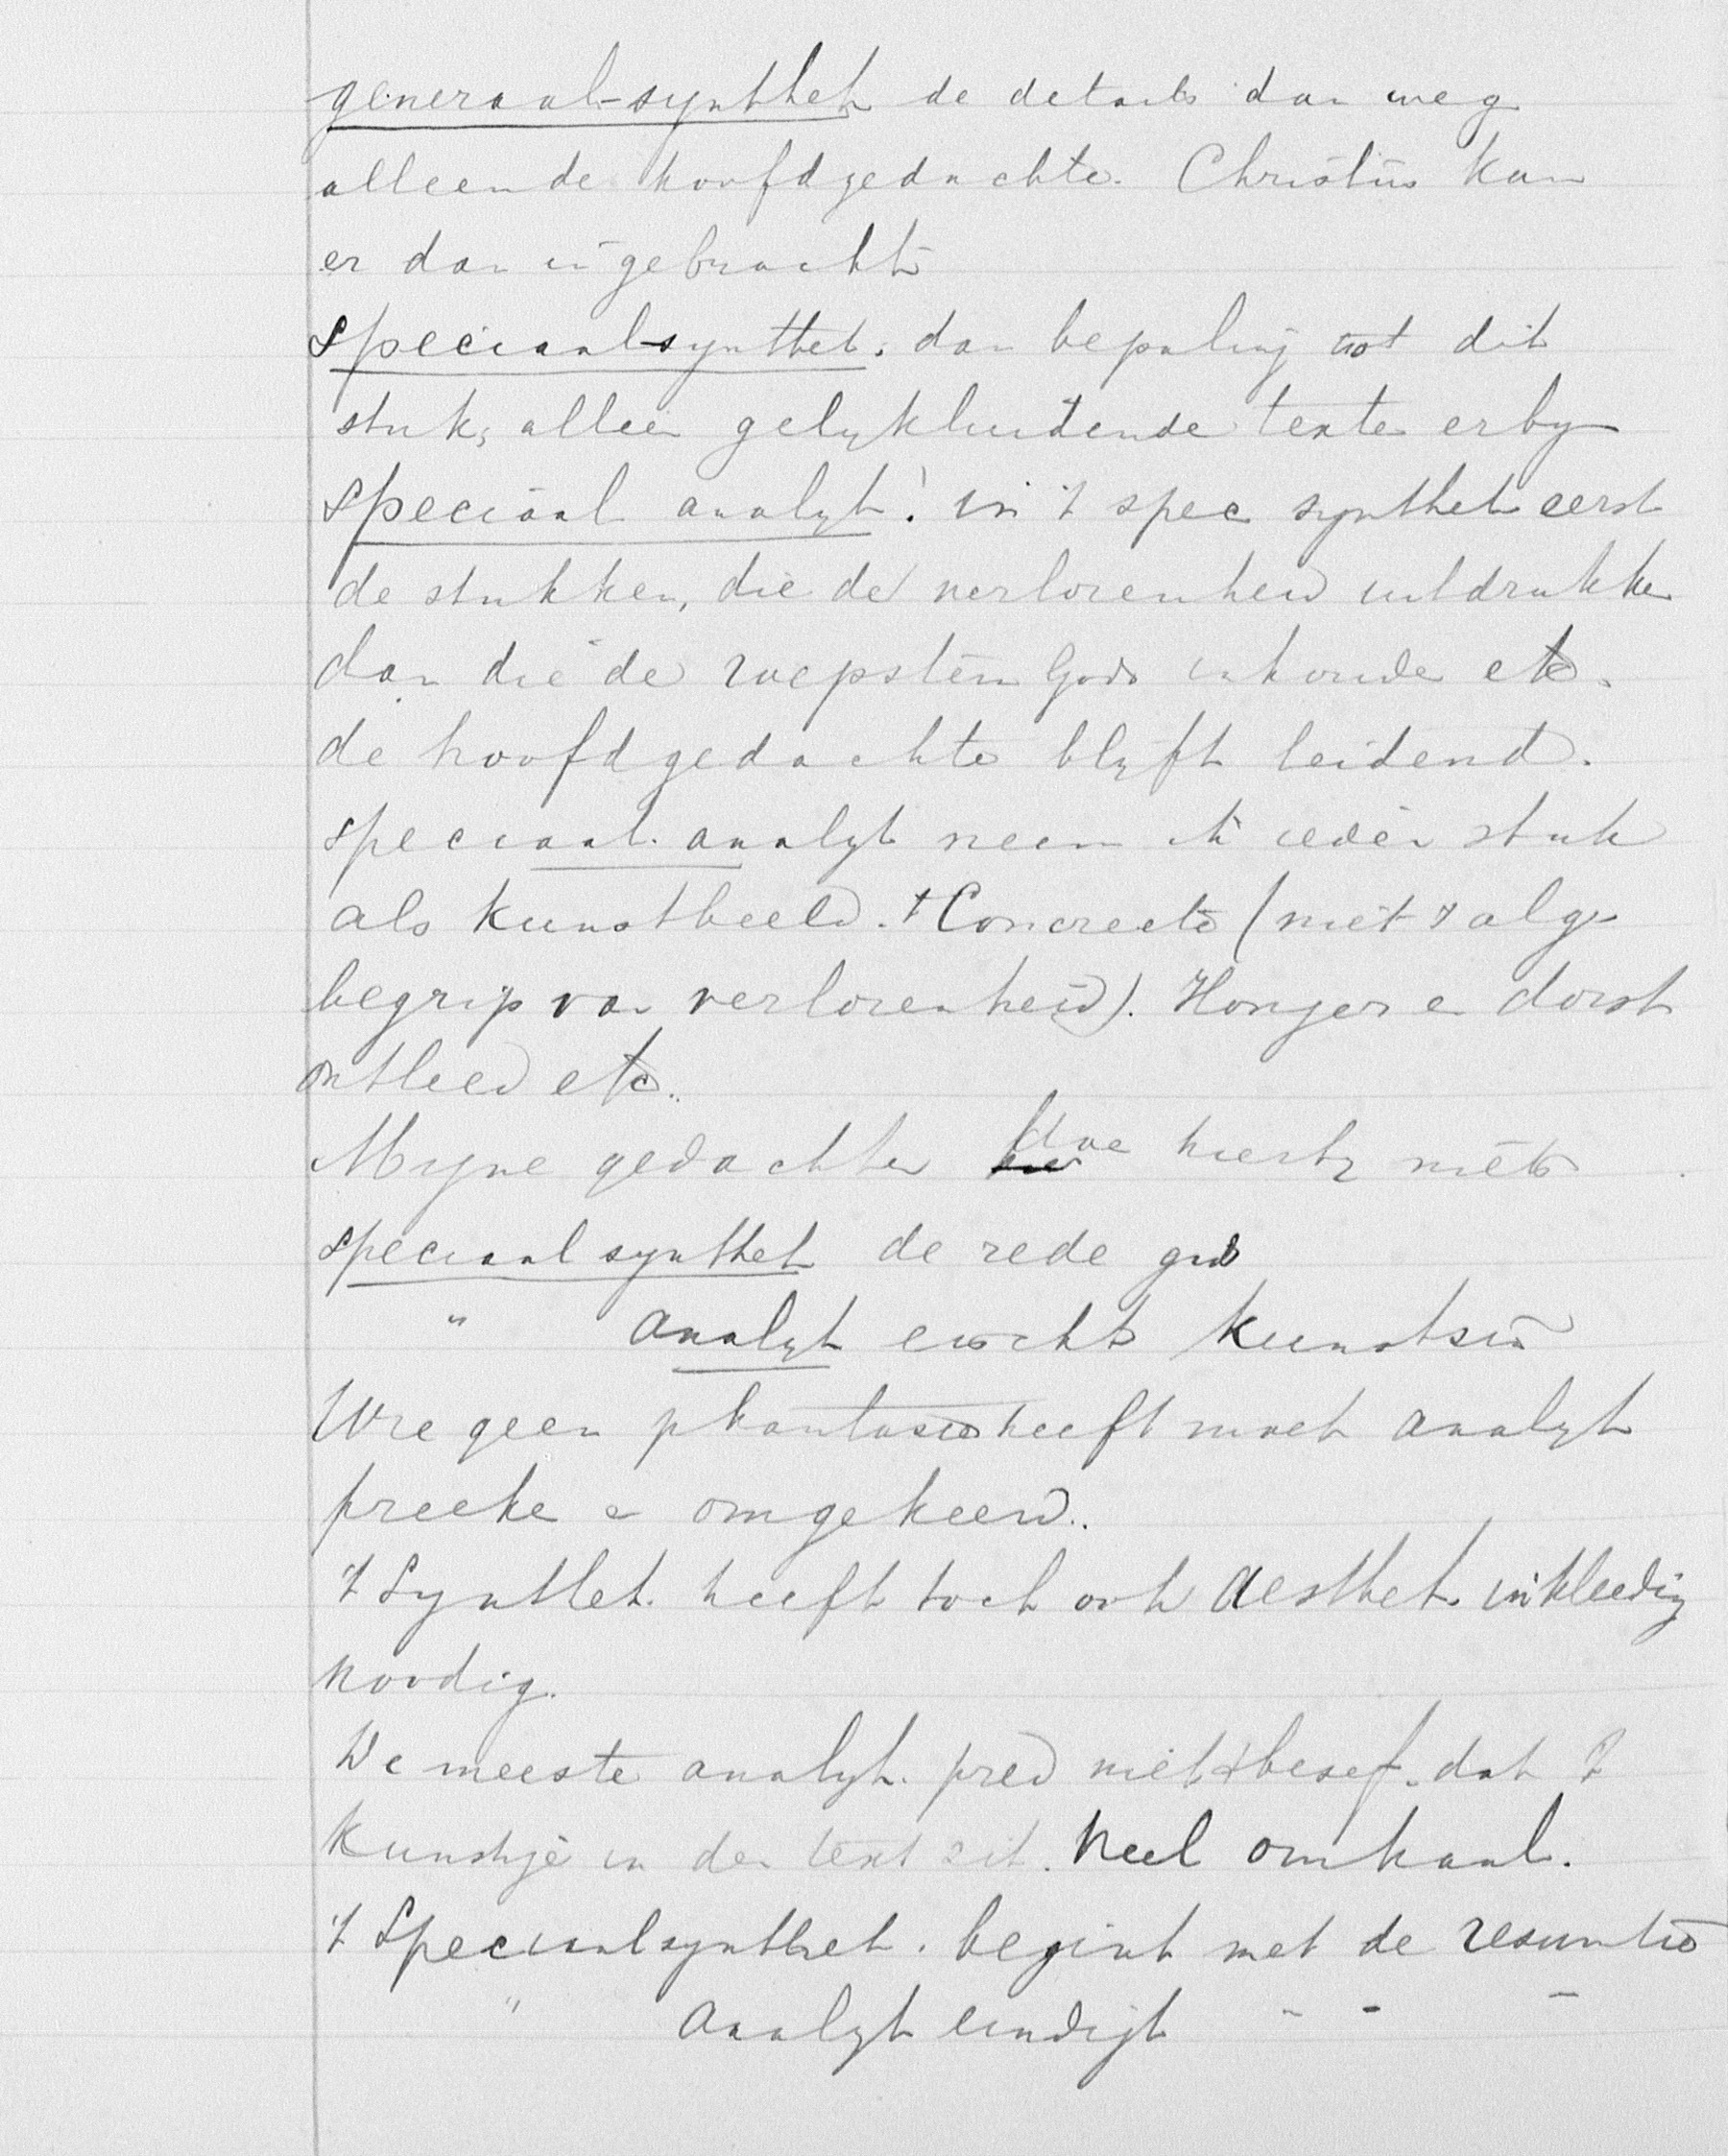 generaal-synthet de details dan weg
alleen de hoofdgedachte. Christus kan
er dan ingebracht
speciaalsynthet. dan bepaling tot dit
stuk, alleen gelykluidende texte erby
speciaal analyt! in 't spec synthet eerst
de stukken, die de verlorenheid uitdrukke
dan die de roepstem Gods inhoude etc.
de hoofdgedachte blyft leidend.
speciaal. analyt neem ik ieder stuk
als kunstbeeld. 't Concrete (niet 't alg.
begrip van verlorenheid). Honger en dorst
ontleed etc.
Myne gedachte doe hierby niets
speciaal synthet de rede gids
" analyt eischt kunstsin
Wie geen phantasie heeft moet analyt
preeke e omgekeerd..
't Synthet. heeft toch ook Aesthet. inkleeding
noodig.
De meeste analyt. pred niet besef. dat 't
kunstje in den text zit. Veel omhaal.
't Speciaalsynthet. begint met de resumtie
" Analyt eindigt - - -